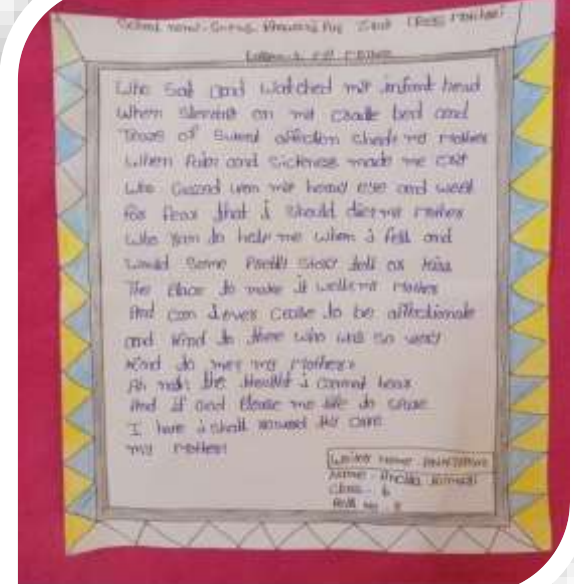 School name-
Who Sat and Watched my infant head
When Sleeping on my cradle bed and
Tears of Sweet affection Shed my Mother
When Pain and Sickness made me cry
Who Gazed upon my heavy eye and weep
for fear that i should die my mother
Who ran to help me when i fell and
Would Some Pretty Story tell or kiss
The Place to make it well my Mother
And can I ever cease to be affectionate
and kind to thee who was so very
kind to me my Mother
Ah no the thought i cannot bear
And if God Please me life to
I hope i shall reward thy care
my mother
Writer name
Name - Kumari
Class - 6
Roll no